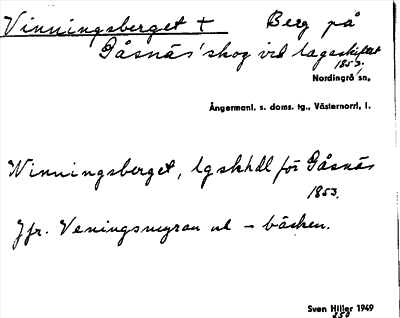 Vinningsberget + Berg på
Gåsnäs' skog vid lagaskiftet
1853.
Nordingrå sn,
Ångermanl. s. doms. tg., Västernorrl. l.
Winningsberget, lgskhdl för Gåsnäs
1853.
Jfr. Veningsmyran ul – bäcken.
Sven Hiller 1949